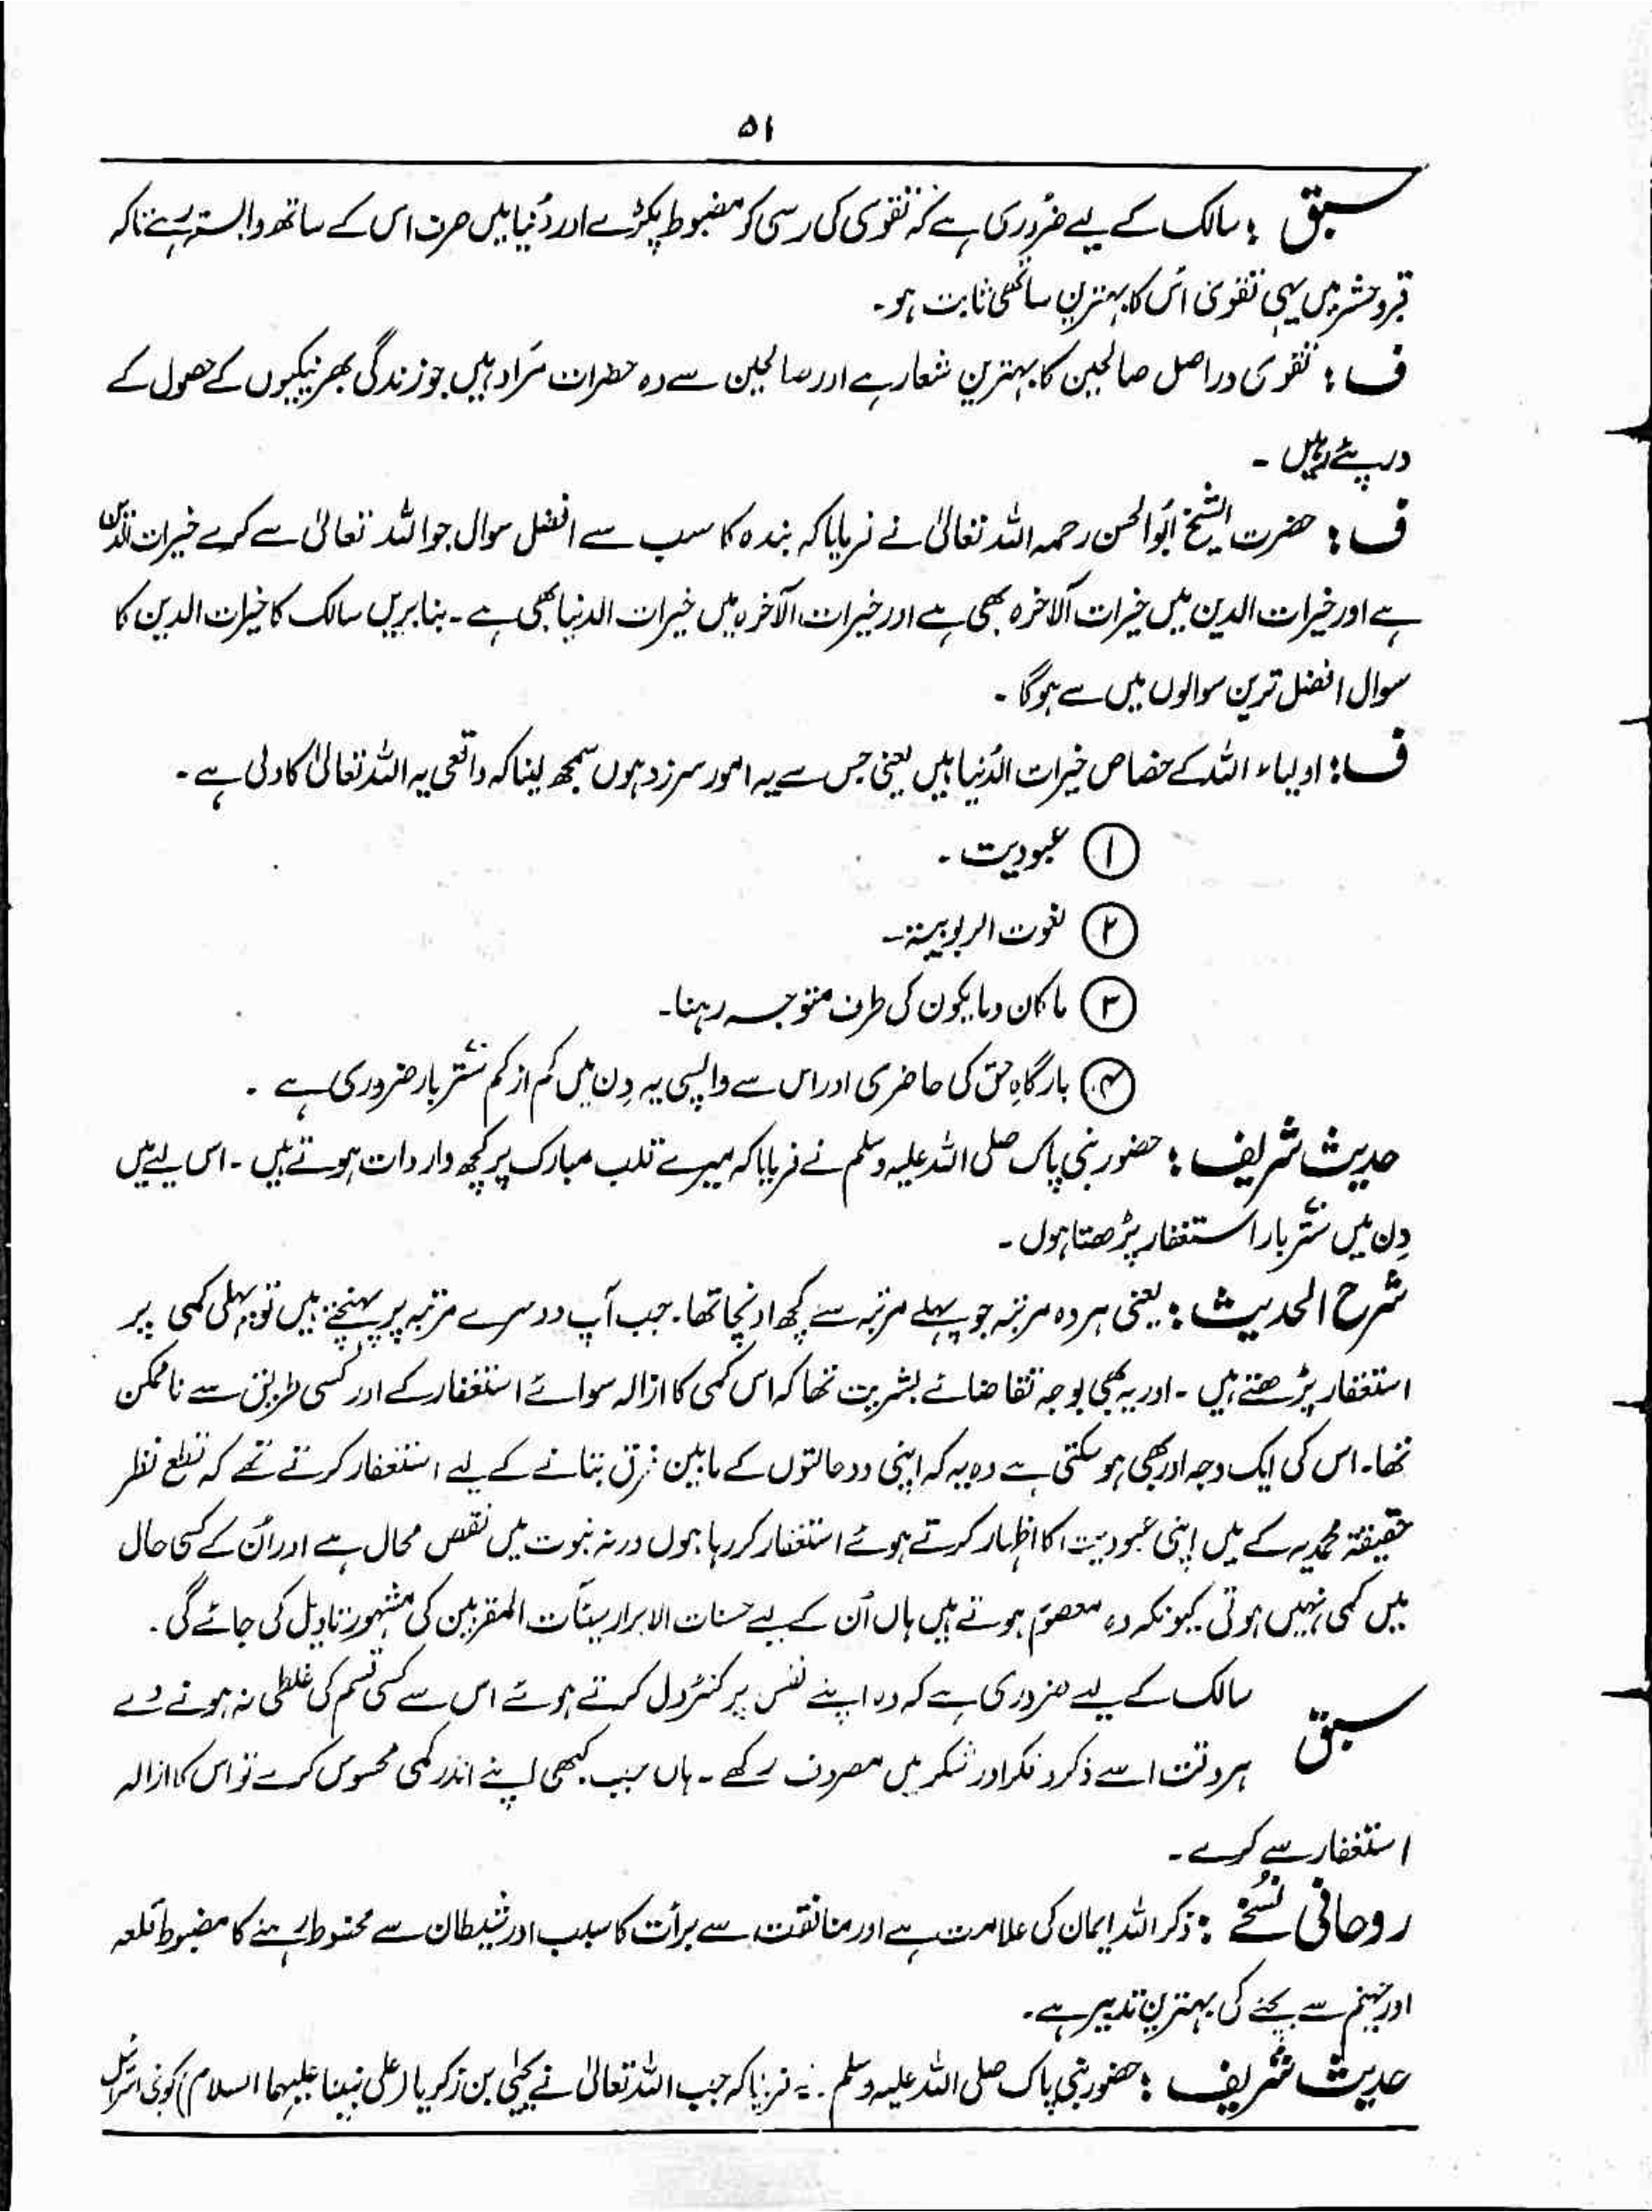 ۵۱
سبق : سالک کے لیے ضروری ہے کہ تقویٰ کی رسی کو مضبوط پکڑے اور دُنیا میں صرف اس کے ساتھ وابستہ رہے تاکہ
قبر و حشر میں یہی تقویٰ اُس کا بہترین ساتھی ثابت ہو۔
ف : تقویٰ دراصل صالحین کا بہترین شعار ہے اور صالحین سے وہ حضرات مُراد ہیں جو زندگی بھر نیکیوں کے حصول کے
درپئے رہیں ۔
ف : حضرت الشیخ ابوالحسن رحمہ اللہ تعالیٰ نے فرمایا کہ بندہ کا سب سے افضل سوال جو اللہ تعالیٰ سے کرے خیرات الدین
ہے اور خیرات الدین میں خیرات الآخرہ بھی ہے اور خیرات الآخرہ میں خیرات الدنیا بھی ہے ۔ بنا بریں سالک کا خیرات الدین کا
سوال افضل ترین سوالوں میں سے ہوگا ۔
ف : اولیاء اللہ کے خصائص خیرات الدُنیا ہیں یعنی جس سے یہ امور سرزد ہوں سمجھ لینا کہ واقعی یہ اللہ تعالیٰ کا ولی ہے ۔
① عبودیت ۔
② نعوت الربوبیۃ۔
③ ما کان وما یکون کی طرف متوجہ رہنا۔
④ بارگاہِ حق کی حاضری اور اس سے واپسی یہ دِن میں کم از کم ستّر بار ضروری ہے ۔
حدیث شریف : حضور نبی پاک صلی اللہ علیہ وسلم نے فرمایا کہ میرے قلب مبارک پر کچھ واردات ہوتے ہیں ۔ اس لیے میں
دِن میں ستّر بار استغفار پڑھتا ہوں ۔
شرح الحدیث : یعنی ہر وہ مرتبہ جو پہلے مرتبہ سے کچھ اونچا تھا۔ جب آپ دوسرے مرتبہ پر پہنچتے ہیں تو پہلی کمی پر
استغفار پڑھتے ہیں ۔ اور یہ بھی بوجہ تقاضائے بشریت تھا کہ اس کمی کا ازالہ سوائے استغفار کے اور کسی طریق سے ناممکن
تھا۔ اس کی ایک وجہ اور بھی ہو سکتی ہے وہ یہ کہ اپنی دو حالتوں کے مابین فرق بتانے کے لیے استغفار کرتے تھے کہ قطع نظر
حقیقۃ محمدیہ کے میں اپنی عبودیت کا اظہار کرتے ہوئے استغفار کر رہا ہوں ورنہ نبوت میں نقص محال ہے اور اُن کے کسی حال
میں کمی نہیں ہوتی کیونکہ وہ معصوم ہوتے ہیں ہاں اُن کے لیے حسنات الابرار سیئات المقربین کی مشہور تاویل کی جائے گی ۔
سبق سالک کے لیے ضروری ہے کہ وہ اپنے نفس پر کنٹرول کرتے ہوئے اس سے کسی قسم کی غلطی نہ ہونے دے
ہر وقت اسے ذکر و فکر اور شکر میں مصروف رکھے ۔ ہاں جب کبھی اپنے اندر کمی محسوس کرے تو اس کا ازالہ
استغفار سے کرے ۔
روحانی نسخے : ذکر اللہ ایمان کی علامت ہے اور منافقت سے برأت کا سبب اور شیطان سے محفوظ رہنے کا مضبوط قلعہ
اور جہنم سے بچنے کی بہترین تدبیر ہے۔
حدیث شریف : حضور نبی پاک صلی اللہ علیہ وسلم نے فرمایا کہ جب اللہ تعالیٰ نے یحییٰ بن زکریا (علی نبینا علیہما السلام) کو بنی اسرائیل